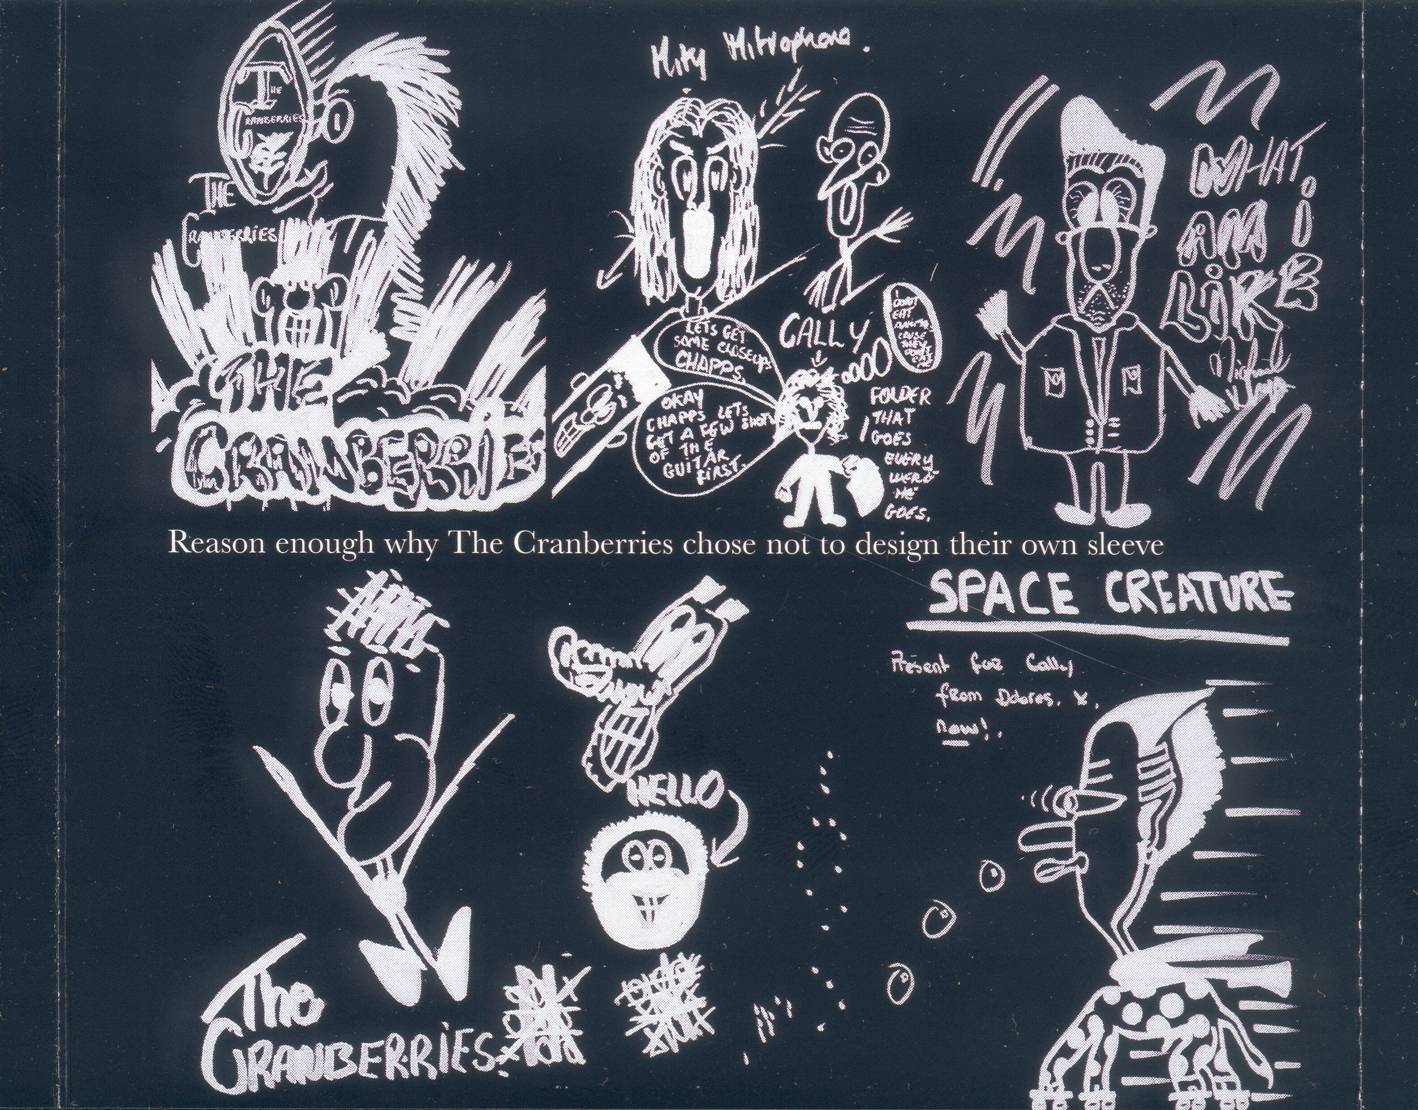 THE
CRANBERRIES
THE
CRANBERRIES
THE
CRANBERRIES
LETS GET
SOME CLOSEUPS
CHAPPS.
OKAY
CHAPPS LETS
GET A FEW SHOTS
OF THE
GUITAR
FIRST.
CALLY
I
DON'T
EAT
CAUSE
THEY
DON'T
FOLDER
THAT
GOES
EVERY
WERE
HE
GOES.
WHAT
AM I
LIKE
Reason enough why The Cranberries chose not to design their own sleeve
The
CRANBERRIES.
HELLO
SPACE CREATURE
Present for Cally
from Dolores. x.
now!.